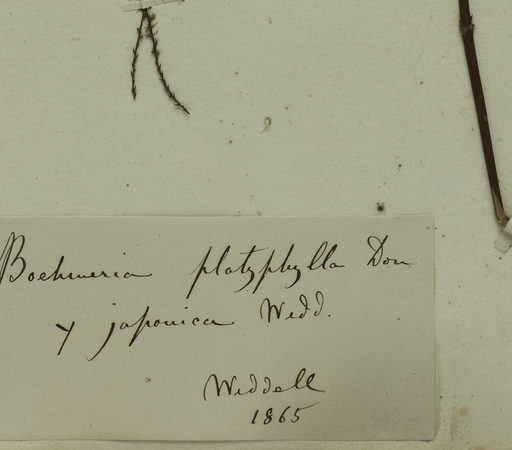 Boehmeria platyphylla Don
γ japonica Wedd.
Weddell
1865